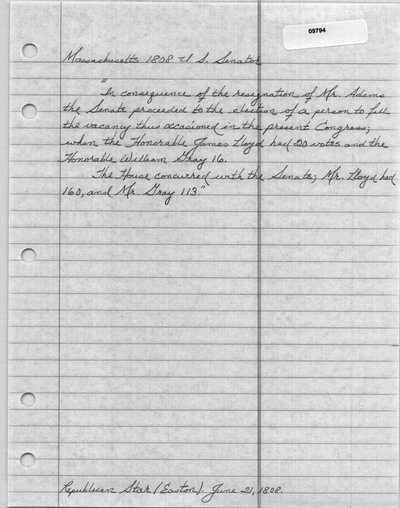 09794
Massachusetts 1808 U. S. Senator
"In consequence of the resignation of Mr. Adams
the Senate proceeded to the election of a person to fill
the vacancy thus occasioned in the present Congress;
when the Honorable James Lloyd had 20 votes and the
Honorable William Gray 16.
The House concurred with the Senate; Mr. Lloyd had
160, and Mr. Gray 113."
Republican Star (Easton). June 21, 1808.